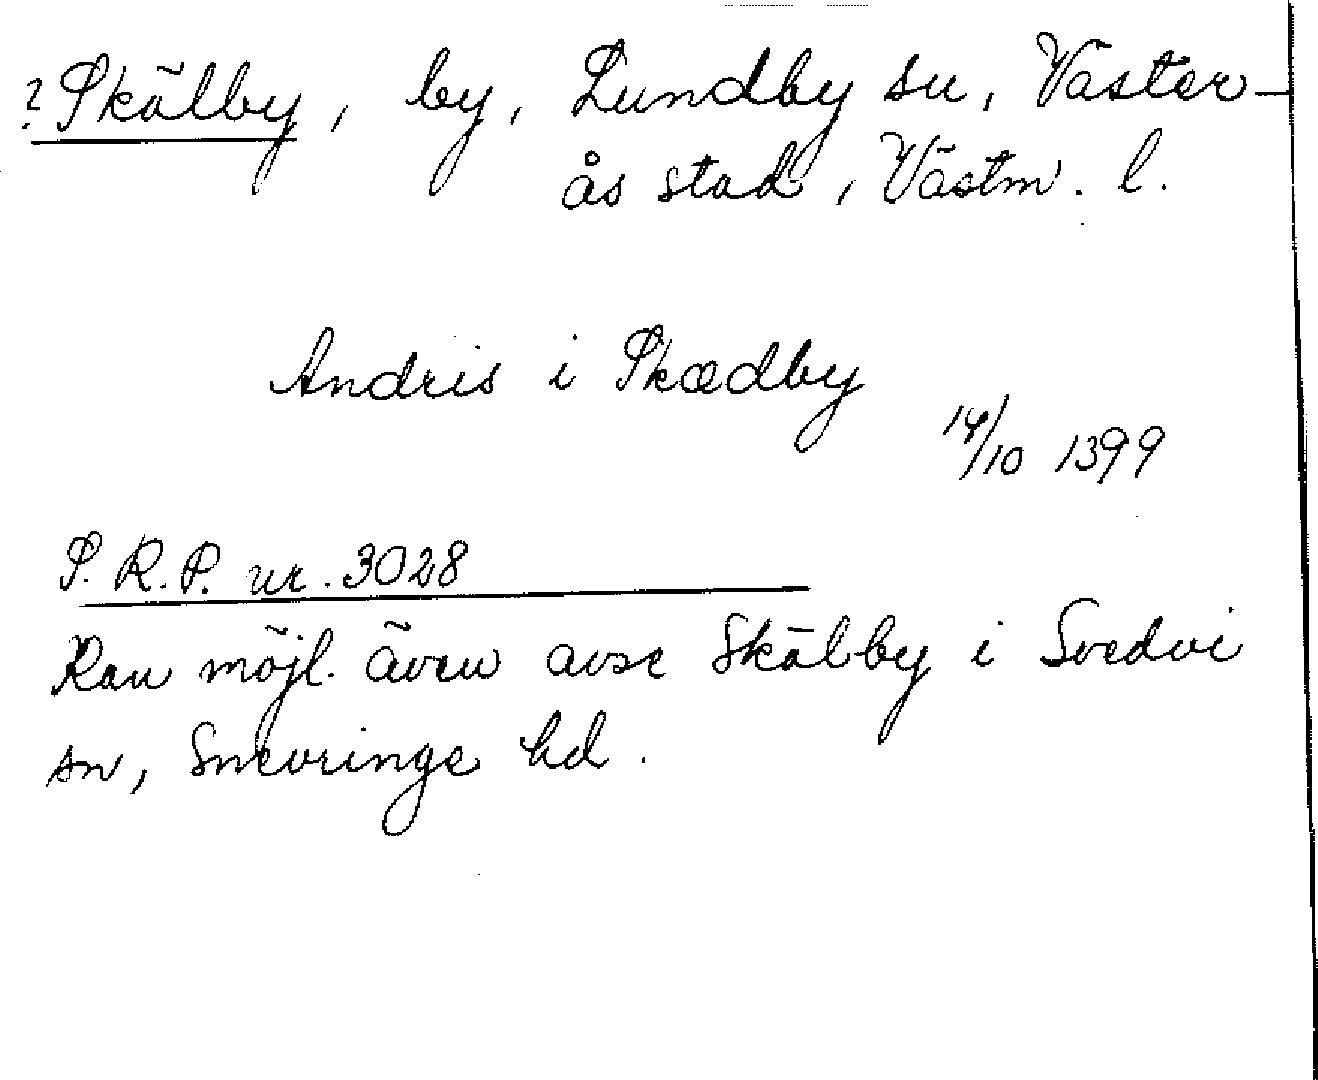 ? Skälby, by, Lundby sn, Väster-
ås stad, Västm. l.
Andris i Skædby
14/10 1399
S. R. P. nr. 3028
Kan möjl. även avse Skälby i Svedvi
sn, Snevringe hd.